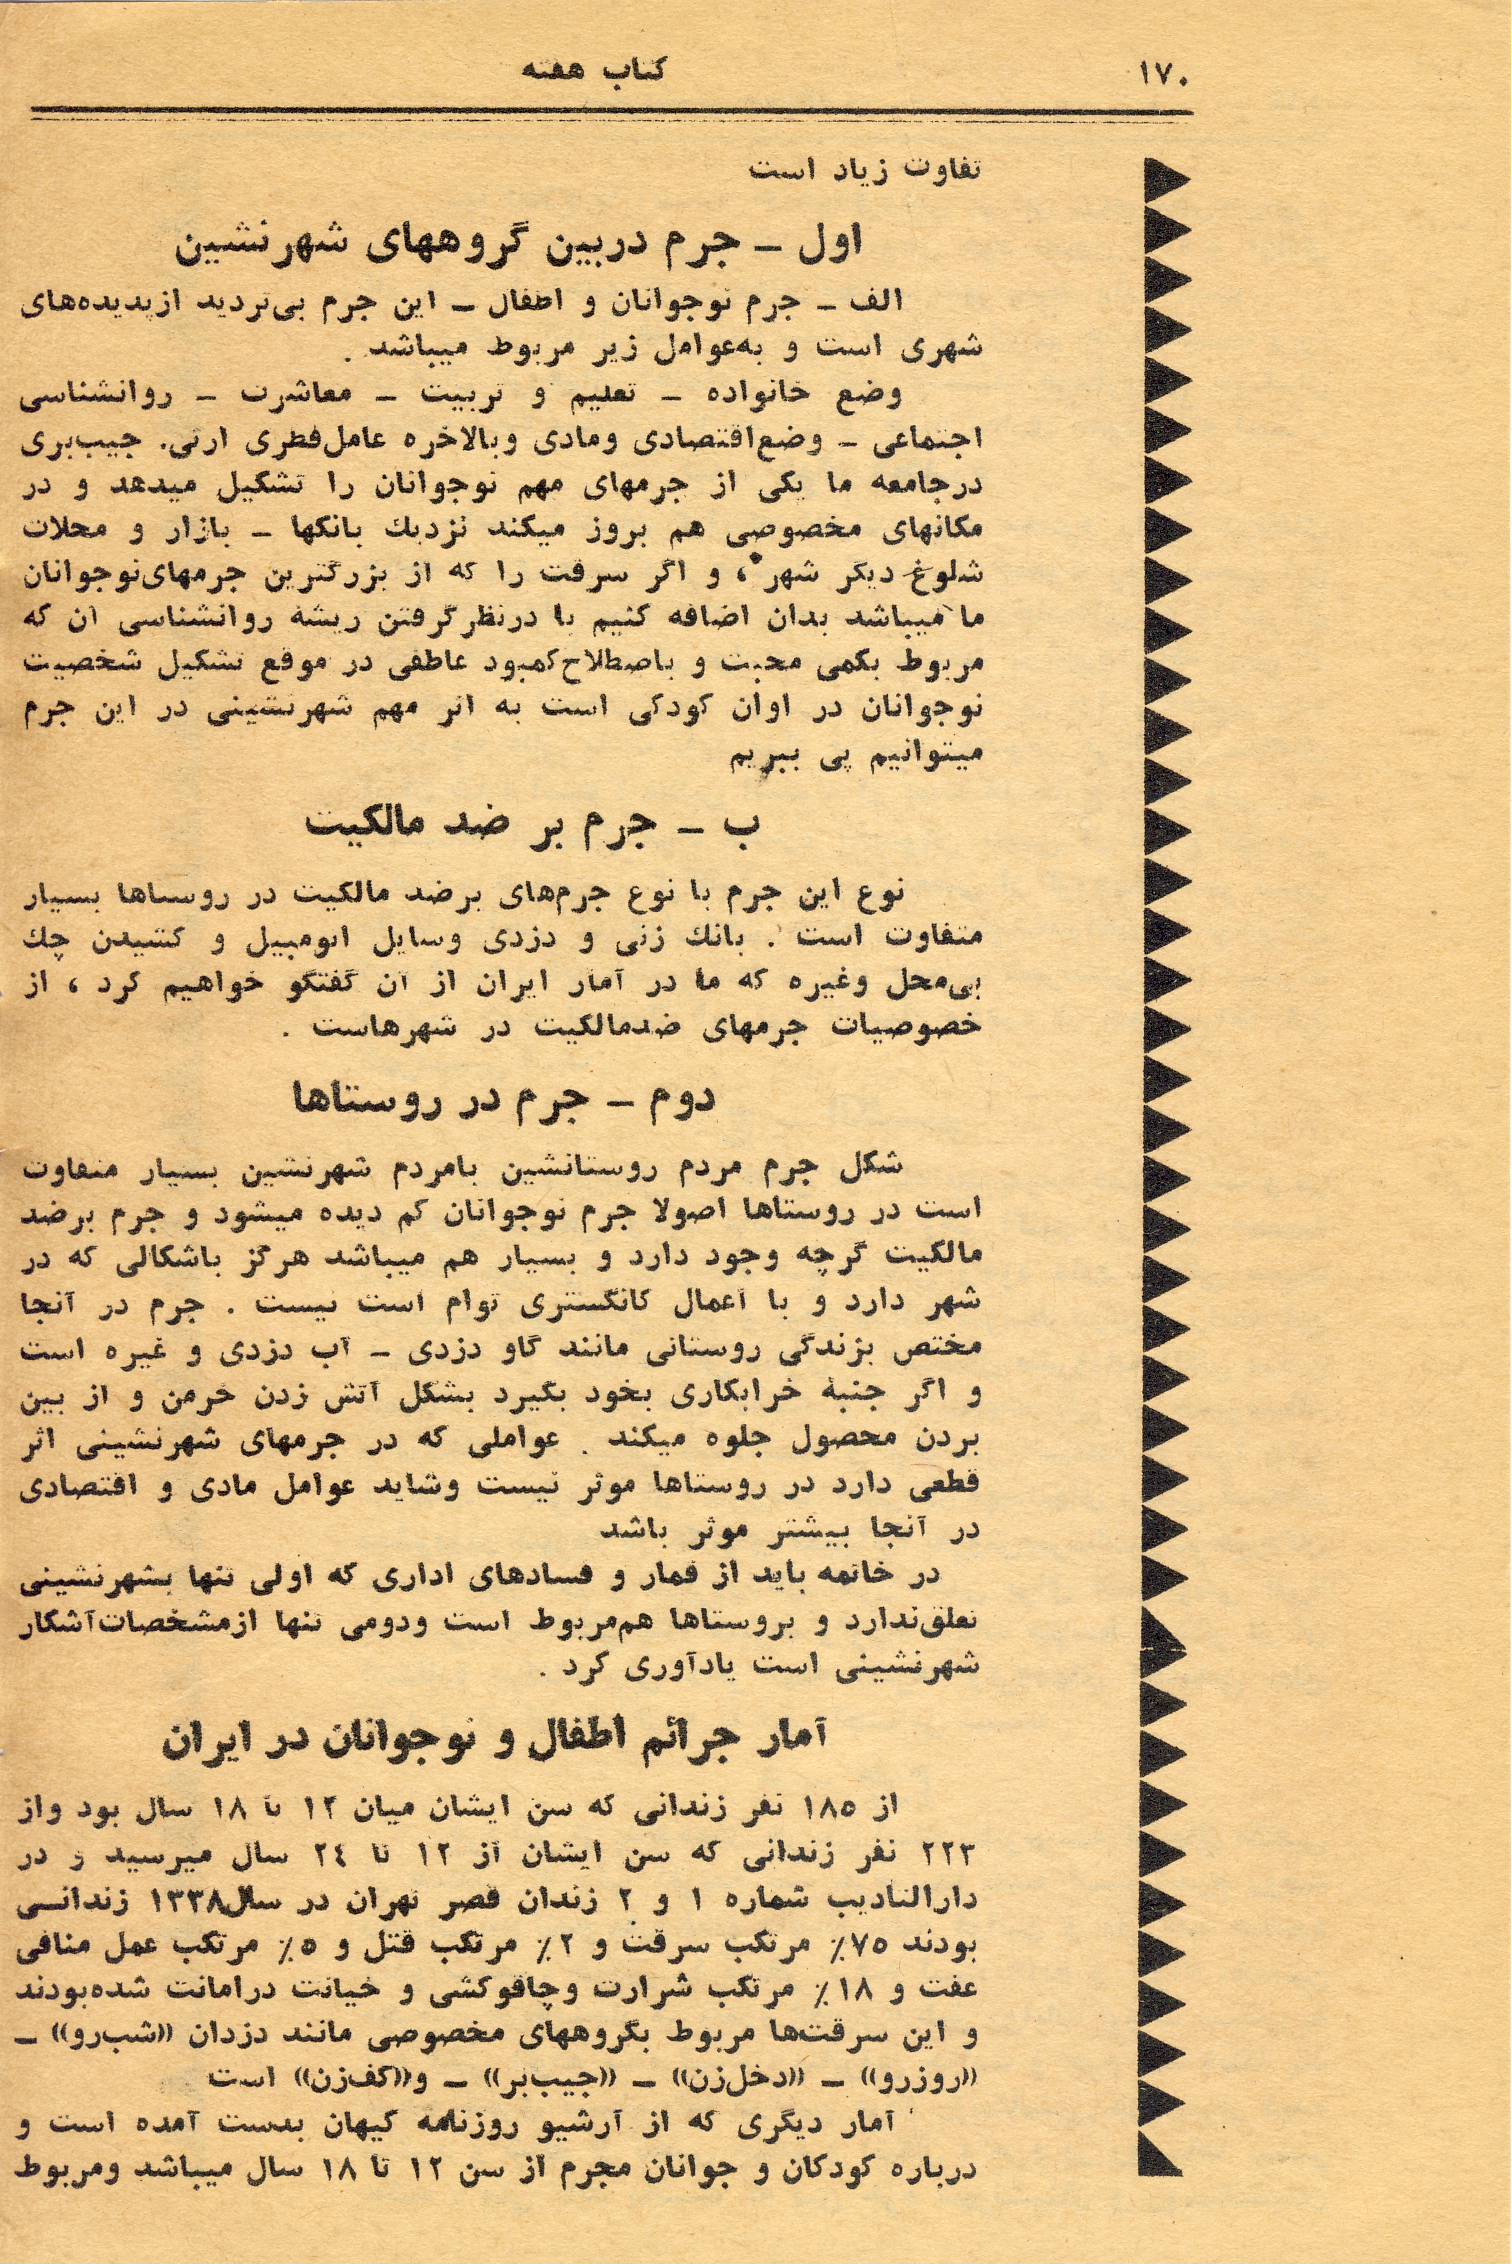 ۱۷۰
کتاب هفته
تفاوت زیاد است
اول ـ جرم دربین گروههای شهرنشین
الف ـ جرم نوجوانان و اطفال ـ این جرم بی‌تردید ازپدیده‌های
شهری است و به‌عوامل زیر مربوط میباشد .
وضع خانواده ـ تعلیم و تربیت ـ معاشرت ـ روانشناسی
اجتماعی ـ وضع‌اقتصادی ومادی وبالاخره عامل‌فطری ارثی. جیب‌بری
درجامعه ما یکی از جرمهای مهم نوجوانان را تشکیل میدهد و در
مکانهای مخصوصی هم بروز میکند نزدیك بانکها ـ بازار و محلات
شلوغ دیگر شهر ، و اگر سرقت را که از بزرگترین جرمهای‌نوجوانان
ما میباشد بدان اضافه کنیم با درنظرگرفتن ریشهٔ روانشناسی آن که
مربوط بکمی محبت و باصطلاح‌کمبود عاطفی در موقع تشکیل شخصیت
نوجوانان در اوان کودکی است به اثر مهم شهرنشینی در این جرم
میتوانیم پی ببریم
ب ـ جرم بر ضد مالکیت
نوع این جرم با نوع جرم‌های برضد مالکیت در روستاها بسیار
متفاوت است . بانك زنی و دزدی وسایل اتومبیل و کشیدن چك
بی‌محل وغیره که ما در آمار ایران از آن گفتگو خواهیم کرد ، از
خصوصیات جرمهای ضدمالکیت در شهرهاست .
دوم ـ جرم در روستاها
شکل جرم مردم روستانشین بامردم شهرنشین بسیار متفاوت
است در روستاها اصولا جرم نوجوانان کم دیده میشود و جرم برضد
مالکیت گرچه وجود دارد و بسیار هم میباشد هرگز باشکالی که در
شهر دارد و با اعمال کانگستری توام است نیست . جرم در آنجا
مختص بزندگی روستائی مانند گاو دزدی ـ آب دزدی و غیره است
و اگر جنبهٔ خرابکاری بخود بگیرد بشکل آتش زدن خرمن و از بین
بردن محصول جلوه میکند . عواملی که در جرمهای شهرنشینی اثر
قطعی دارد در روستاها موثر نیست وشاید عوامل مادی و اقتصادی
در آنجا بیشتر موثر باشد
در خاتمه باید از قمار و فسادهای اداری که اولی تنها بشهرنشینی
تعلق‌ندارد و بروستاها هم‌مربوط است ودومی تنها ازمشخصات‌آشکار
شهرنشینی است یادآوری کرد .
آمار جرائم اطفال و نوجوانان در ایران
از ۱۸۵ نفر زندانی که سن ایشان میان ۱۲ تا ۱۸ سال بود واز
۲۲۳ نفر زندانی که سن ایشان از ۱۲ تا ۲٤ سال میرسید و در
دارالتادیب شماره ۱ و ۲ زندان قصر تهران در سال۱۳۳۸ زندانـی
بودند ۷۵٪ مرتکب سرقت و ۲٪ مرتکب قتل و ۵٪ مرتکب عمل منافی
عفت و ۱۸٪ مرتکب شرارت وچاقوکشی و خیانت درامانت شده‌بودند
و این سرقت‌ها مربوط بگروههای مخصوصی مانند دزدان «شب‌رو» ـ
«روزرو» ـ «دخل‌زن» ـ «جیب‌بر» ـ و«کف‌زن» است
آمار دیگری که از آرشیو روزنامه کیهان بدست آمده است و
درباره کودکان و جوانان مجرم از سن ۱۲ تا ۱۸ سال میباشد ومربوط